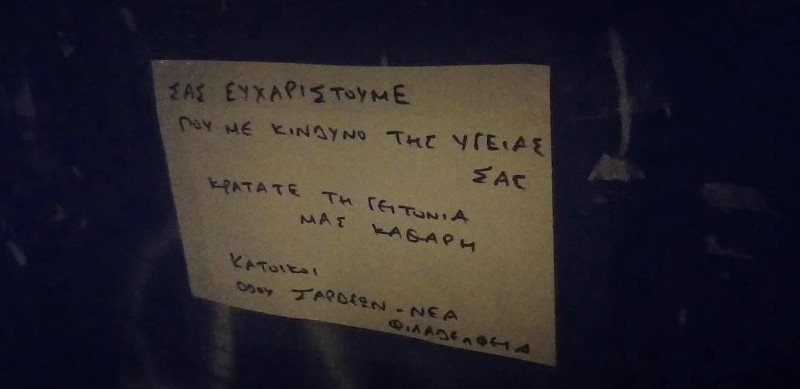 ΣΑΣ ΕΥΧΑΡΙΣΤΟΥΜΕ
ΠΟΥ ΜΕ ΚΙΝΔΥΝΟ ΤΗΣ ΥΓΕΙΑΣ
ΣΑΣ
ΚΡΑΤΑΤΕ ΤΗ ΓΕΙΤΟΝΙΑ
ΜΑΣ ΚΑΘΑΡΗ
ΚΑΤΟΙΚΟΙ
ΟΔΟΥ ΣΑΡΔΕΩΝ - ΝΕΑ
ΦΙΛΑΔΕΛΦΕΙΑ